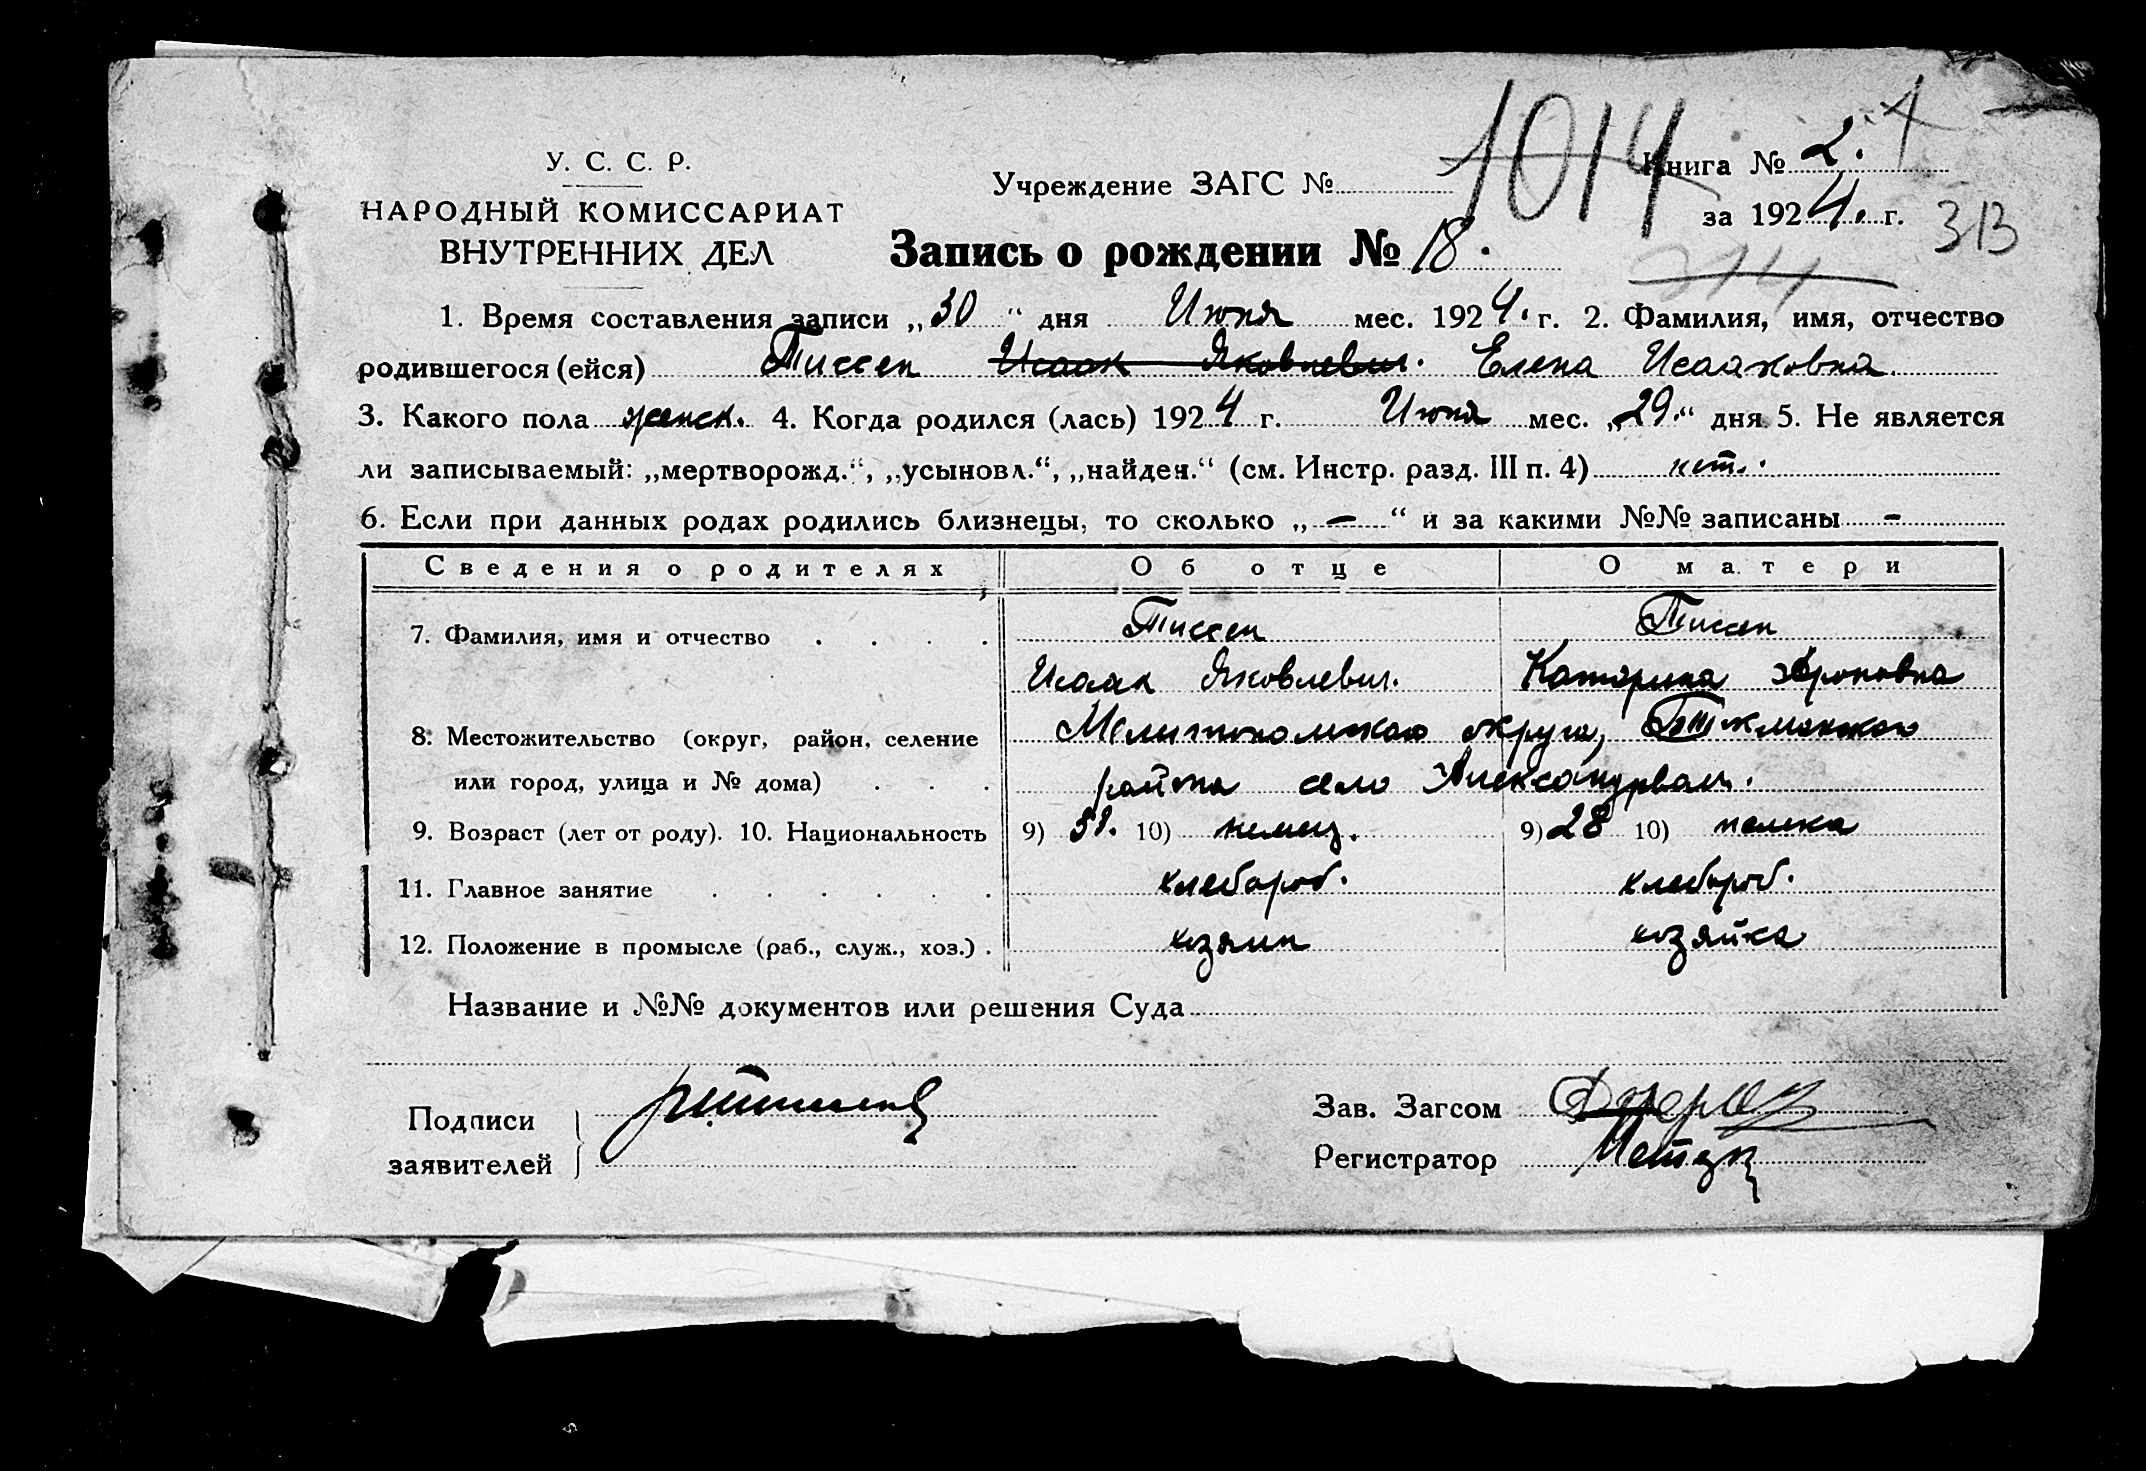 1014
У. С. С. Р.
НАРОДНЫЙ КОМИССАРИАТ
ВНУТРЕННИХ ДЕЛ
Учреждение ЗАГС №
Книга № 2.
за 1924. г.
313
314
Запись о рождении № 18.
1. Время составления записи „30“ дня Июня мес. 1924. г. 2. Фамилия, имя, отчество
родившегося (ейся) Тиссен Исаак Яковлевич. Елена Исааковна.
3. Какого пола женск. 4. Когда родился (лась) 1924 г. Июня мес. „29.“ дня. 5. Не является
ли записываемый: „мертворожд.“, „усыновл.“, „найден.“ (см. Инстр. разд. III п. 4) нет.
6. Если при данных родах родились близнецы, то сколько „—“ и за какими №№ записаны -
Сведения о родителях Об отце О матери
7. Фамилия, имя и отчество . . . . Тиссен Тиссен
Исаак Яковлевич. Катарина
8. Местожительство (округ, район, селение Мелитопольского округа,
или город, улица и № дома) . . . района село
9. Возраст (лет от роду). 10. Национальность 9) 31. 10) немец. 9) 28 10) немка
11. Главное занятие . . . . . . хлебороб. хлебороб.
12. Положение в промысле (раб., служ., хоз.) . хозяин хозяйка
Название и №№ документов или решения Суда
Подписи
заявителей
Зав. Загсом
Регистратор